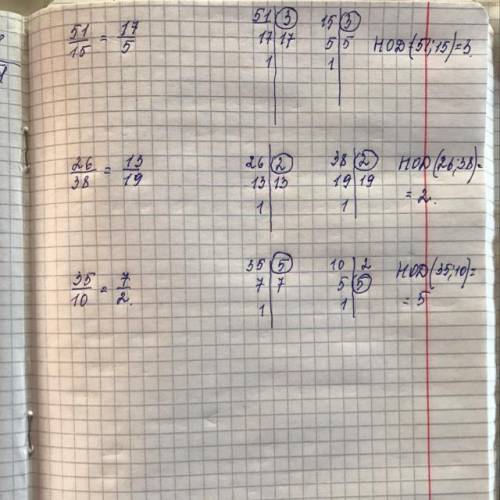 51/15 = 17/5
51 | 3
17 | 17
1 |
15 | 3
5 | 5
1 |
НОД (51; 15) = 3.
26/38 = 13/19
26 | 2
13 | 13
1 |
38 | 2
19 | 19
1 |
НОД (26; 38) =
= 2.
35/10 = 7/2.
35 | 5
7 | 7
1 |
10 | 2
5 | 5
1 |
НОД (35; 10) =
= 5